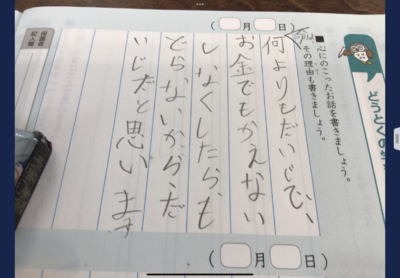 どうとくの
■心にのこったお話を書きましょう。
その理由も書きましょう。
(月日)
命は
何よりもだいじで、
お金でもかえない
しなくしたらも
どらないから、だ
いじだと思います
(月日)